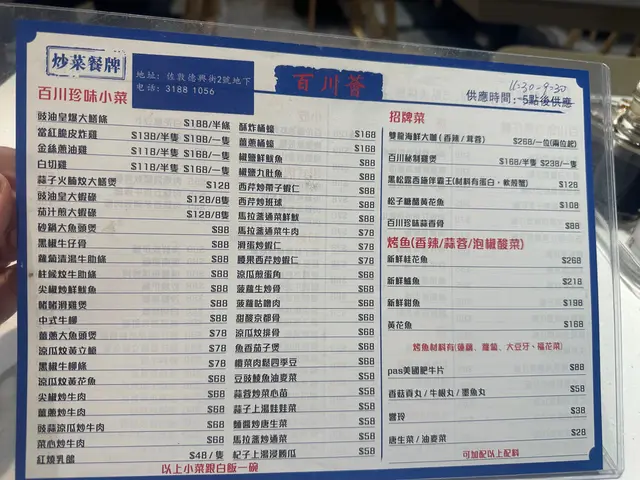 炒菜餐牌
地址: 佐敦德興街2號地下
電话: 3188 1056
百川薈
11:30-9:30
供應時間: 5點後供應
百川珍味小菜
豉油皇爆大鱔條 $188/半條
當紅脆皮炸雞 $138/半隻 $198/一隻
金絲蔥油雞 $118/半隻 $168/一隻
白切雞 $118/半隻 $168/一隻
蒜子火腩炆大鱔煲 $128
豉油皇大蝦碌 $128/8隻
茄汁煎大蝦碌 $128/8隻
砂鍋大魚頭煲 $98
黑椒牛仔骨 $98
蘿蔔清湯牛肋條 $88
柱候炆牛肋條 $88
尖椒炒鮮魷魚 $88
啫啫滑雞煲 $88
中式牛柳 $88
薑蔥大魚頭煲 $78
涼瓜炆黃立鯧 $78
黑椒牛柳條 $78
涼瓜炆黃花魚 $68
尖椒炒牛肉 $68
薑蔥炒牛肉 $68
豉蒜涼瓜炒牛肉 $68
菜心炒牛肉 $68
紅燒乳鴿 $48/隻
酥炸桶蠔 $168
薑蔥桶蠔 $168
椒鹽鮮魷魚 $88
椒鹽九肚魚 $88
西芹炒帶子蝦仁 $88
西芹炒班球 $88
馬拉盞通菜鮮魷 $88
馬拉盞通菜牛肉 $78
滑蛋炒蝦仁 $78
腰果西芹炒蝦仁 $78
涼瓜煎蛋角 $68
菠蘿生炒骨 $68
菠蘿咕嚕肉 $68
甜酸京都骨 $68
涼瓜炆排骨 $68
魚香茄子煲 $68
欖菜肉鬆四季豆 $68
豆豉鯪魚油麥菜 $58
蒜蓉炒菜心苗 $58
蒜子上湯娃娃菜 $58
麵醬炒唐生菜 $58
馬拉盞炒通菜 $58
杞子上湯浸勝瓜 $58
以上小菜跟白飯一碗
招牌菜
雙龍海鮮大咖(香辣/茸蓉) $268/一位(兩位起)
百川秘制雞煲 $168/半隻 $238/一隻
黑松露香腸伴霸王(材料有蛋白，軟殼蟹) $128
松子糖醋黃花魚 $108
百川珍味蒜香骨 $88
烤鱼(香辣/蒜蓉/泡椒酸菜)
新鮮桂花魚 $268
新鮮鱸魚 $218
新鮮鯇魚 $198
黃花魚 $168
烤魚材料有(蓮藕、蘿蔔、大豆牙、福花菜)
pas美國肥牛片 $88
香菇貢丸/牛根丸/墨魚丸 $58
響玲 $38
唐生菜/油麥菜 $28
可加配以上配料